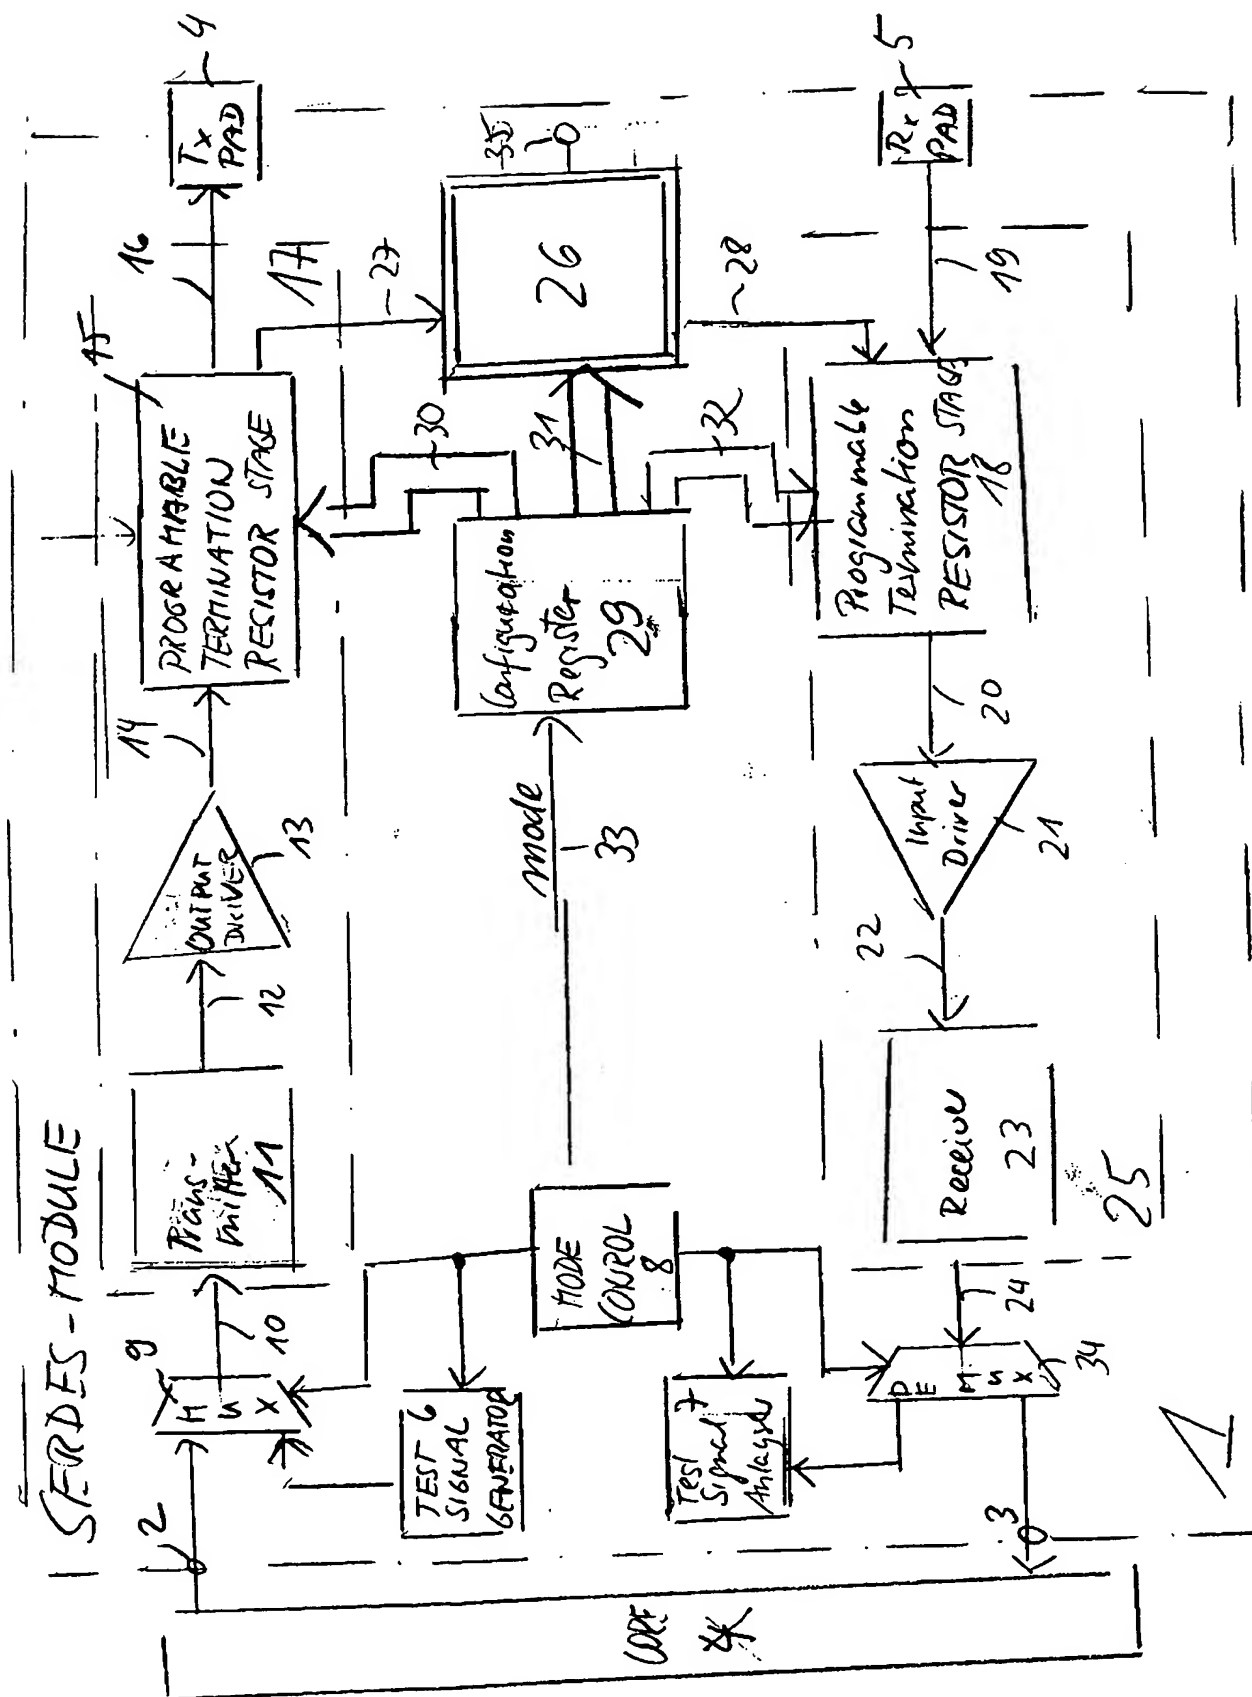 SERDES-MODULE
CORE
2
3
MUX
9
10
Trans-
mitter
11
12
OUTPUT
DRIVER
13
14
PROGRAMABLE
TERMINATION
RESISTOR STAGE
15
16
17
Tx
PAD
4
TEST 6
SIGNAL
GENERATOR
MODE
CONROL
8
mode
33
Configuration
Register
29
30
31
32
26
27
28
35
Test
Signal 7
Anlayser
DE
MUX
34
24
Receiver
23
25
22
Input
Driver
21
20
Programmable
Termination
RESISTOR STAGE
18
19
Rx
PAD
5
1